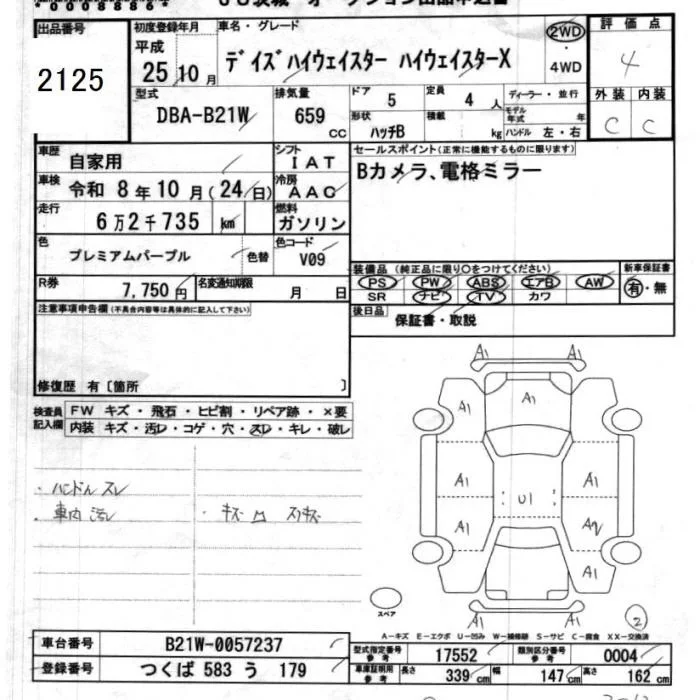 0008886
出品番号 初度登録年月 車名・グレード 2WD 評価点
2125 平成 25年10月 デイズハイウェイスター ハイウェイスターX ・4WD 4
型式 排気量 ドア 5 定員 4人 ディーラー・並行 外装 内装
DBA-B21W 659cc 形状 ハッチB 積載 kg モデル年式 年 ハンドル 左・右 C C
車歴 自家用 シフト IAT セールスポイント(正常に機能するものに限ります)
車検 令和 8年10月(24日) 冷房 AAC Bカメラ、電格ミラー
走行 6万2千735 km 燃料 ガソリン
色 プレミアムパープル 色替 色コード V09
装備品(純正品に限り○をつけてください) 新車保証書
PS PW ABS エアB AW 有・無
SR ナビ TV カワ
R券 7,750円 名変通知期限 月 日
後日品 保証書・取説
注意事項申告欄(不具合内容等は具体的に記入して下さい)
修復歴 有〔箇所 〕
検査員記入欄 FW キズ・飛石・ヒビ割・リペア跡・×要
内装 キズ・汚レ・コゲ・穴・スレ・キレ・破レ
・ハンドルスレ
・車内汚レ ・キズ凹スリキズ
A1 A1
A1 A1
A1 A1
U1
A1 A2
A1
A1
スペア
2
A-キズ E-エクボ U-凹み W-補修跡 S-サビ C-腐食 XX-交換済
車台番号 B21W-0057237 型式指定番号 参考 17552 類別区分番号 参考 0004
登録番号 つくば 583 う 179 車庫証明用 参考 長さ 339cm 幅 147cm 高さ 162cm